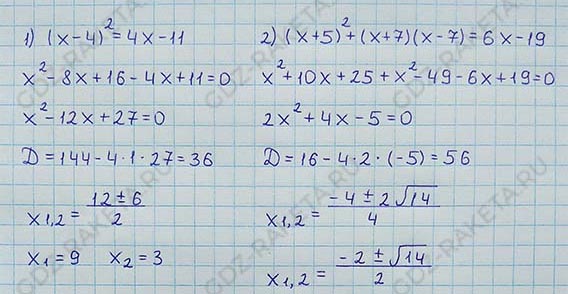 1) (x-4)²=4x-11
x²-8x+16-4x+11=0
x²-12x+27=0
D=144-4·1·27=36
x1,2= 12±6 / 2
x1=9 x2=3
2) (x+5)²+(x+7)(x-7)=6x-19
x²+10x+25+x²-49-6x+19=0
2x²+4x-5=0
D=16-4·2·(-5)=56
x1,2= -4±2√14 / 4
x1,2= -2±√14 / 2
GDZ-RAKETA.RU